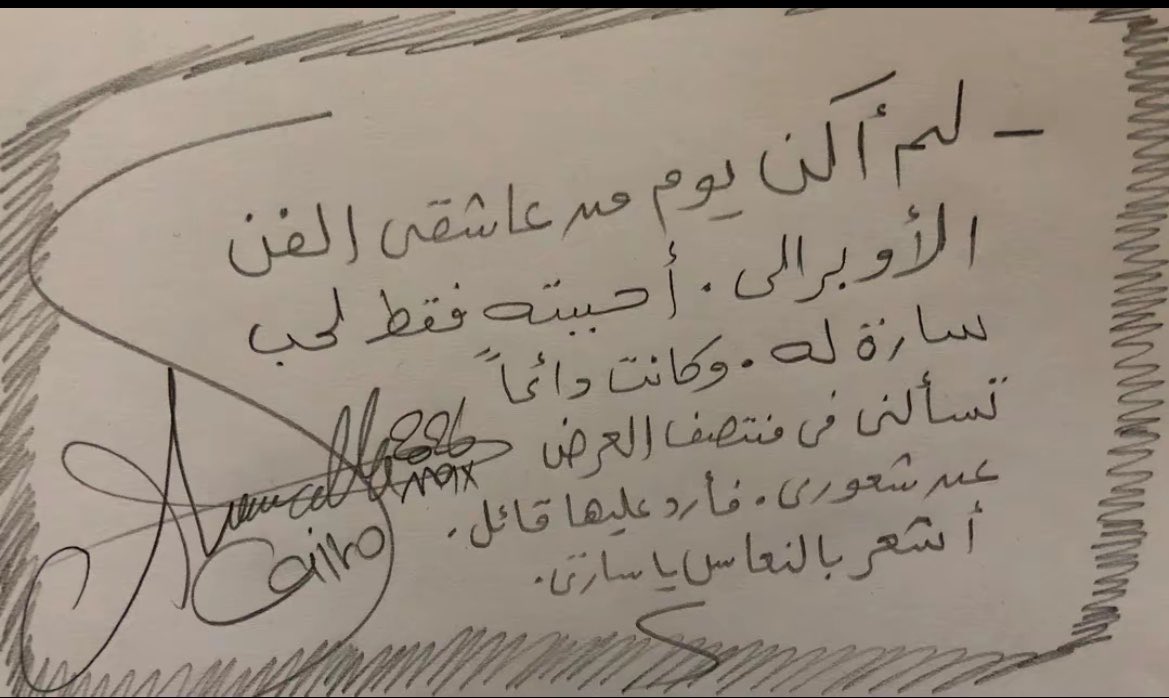 - لم أكن يوم من عاشقى الفن
الأوبرالى . أحببته فقط لحب
سارة له . وكانت دائماً
تسألنى فى منتصف العرض
عن شعورى . فأرد عليها قائل .
أشعر بالنعاس يا سارتى .
2026
Cairo